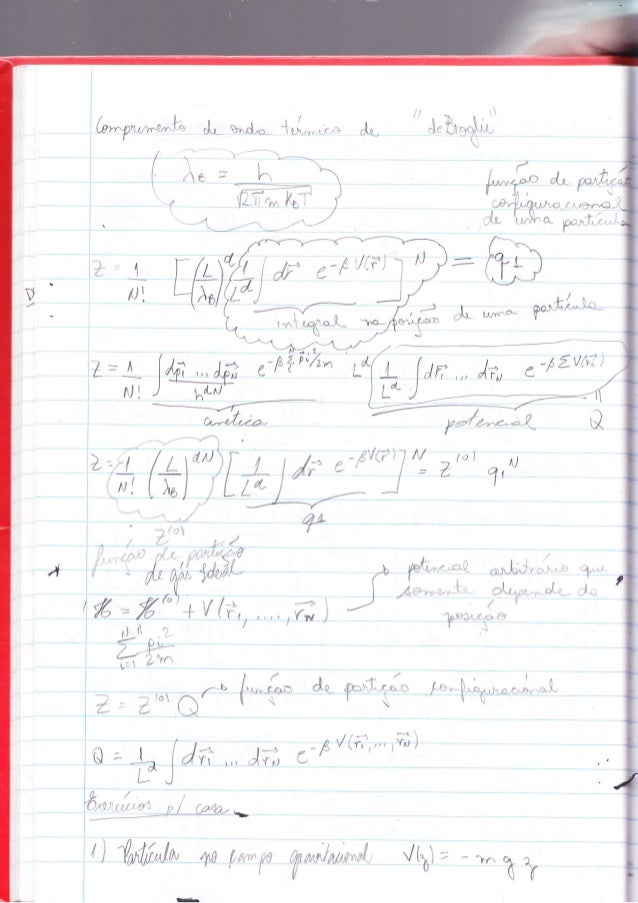 Comprimento de onda térmico de "de Broglie"
λ_B = h / √(2πmk_BT)
função de partição
configuracional
de uma partícula
Z = 1/N! [(L/λ_B)^d (1/L^d) ∫ dr⃗ e^{-βV(r⃗)}]^N = q1
integral na posição de uma partícula
Z = 1/N! ∫ dp⃗1 ... dp⃗N / h^{dN} e^{-β Σ p⃗i²/2m} L^d (1/L^d ∫ dr⃗1 ... dr⃗N e^{-βΣV(r⃗i)})
cinética potencial Q
Z = 1/N! (L/λ_B)^{dN} [1/L^d ∫ dr⃗ e^{-βV(r⃗)}]^N = Z^(0) q1^N
Z^(0) q1
função de partição
de gás ideal
potencial arbitrário que
somente depende da
posição
ℋ = ℋ^(0) + V(r⃗1, ...., r⃗N)
Σ_{i=1}^N pi²/2m
Z = Z^(0) Q → função de partição configuracional
Q = 1/L^d ∫ dr⃗1 ... dr⃗N e^{-βV(r⃗1, ..., r⃗N)}
Exercícios p/ casa
1) Partícula no campo gravitacional V(z) = -mgz